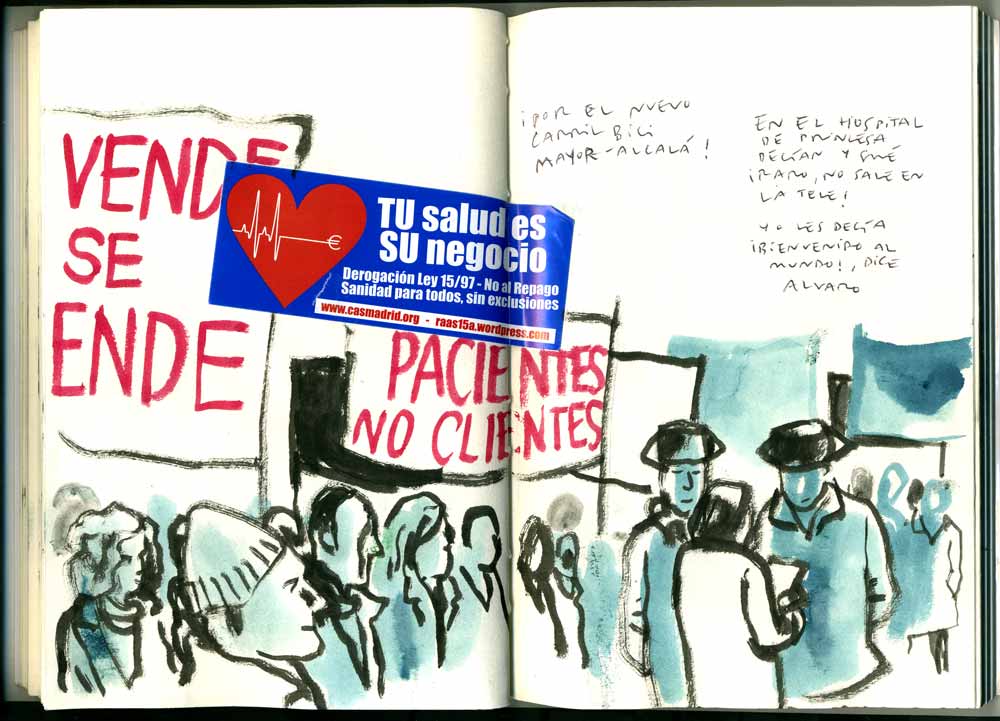 VENDE
SE
ENDE
TU salud es
SU negocio
Derogación Ley 15/97 - No al Repago
Sanidad para todos, sin exclusiones
www.casmadrid.org - raas15a.wordpress.com
€
PACIENTES
NO CLIENTES
¡POR EL NUEVO
CARRIL BICI
MAYOR-ALCALÁ!
EN EL HOSPITAL
DE PRINCESA
DECÍAN Y QUÉ
¡RARO, NO SALE EN
LA TELE!
YO LES DECÍA
¡BIENVENIDO AL
MUNDO!, DICE
ALVARO